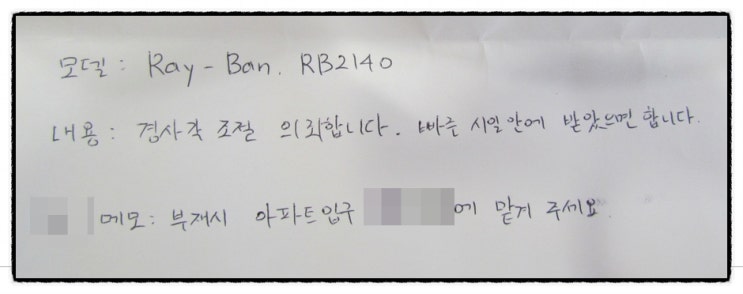 모델 : Ray-Ban. RB2140
내용 : 경사각 조절 의뢰합니다. 빠른 시일안에 받았으면 합니다.
메모 : 부재시 아파트입구 에 맡겨 주세요.